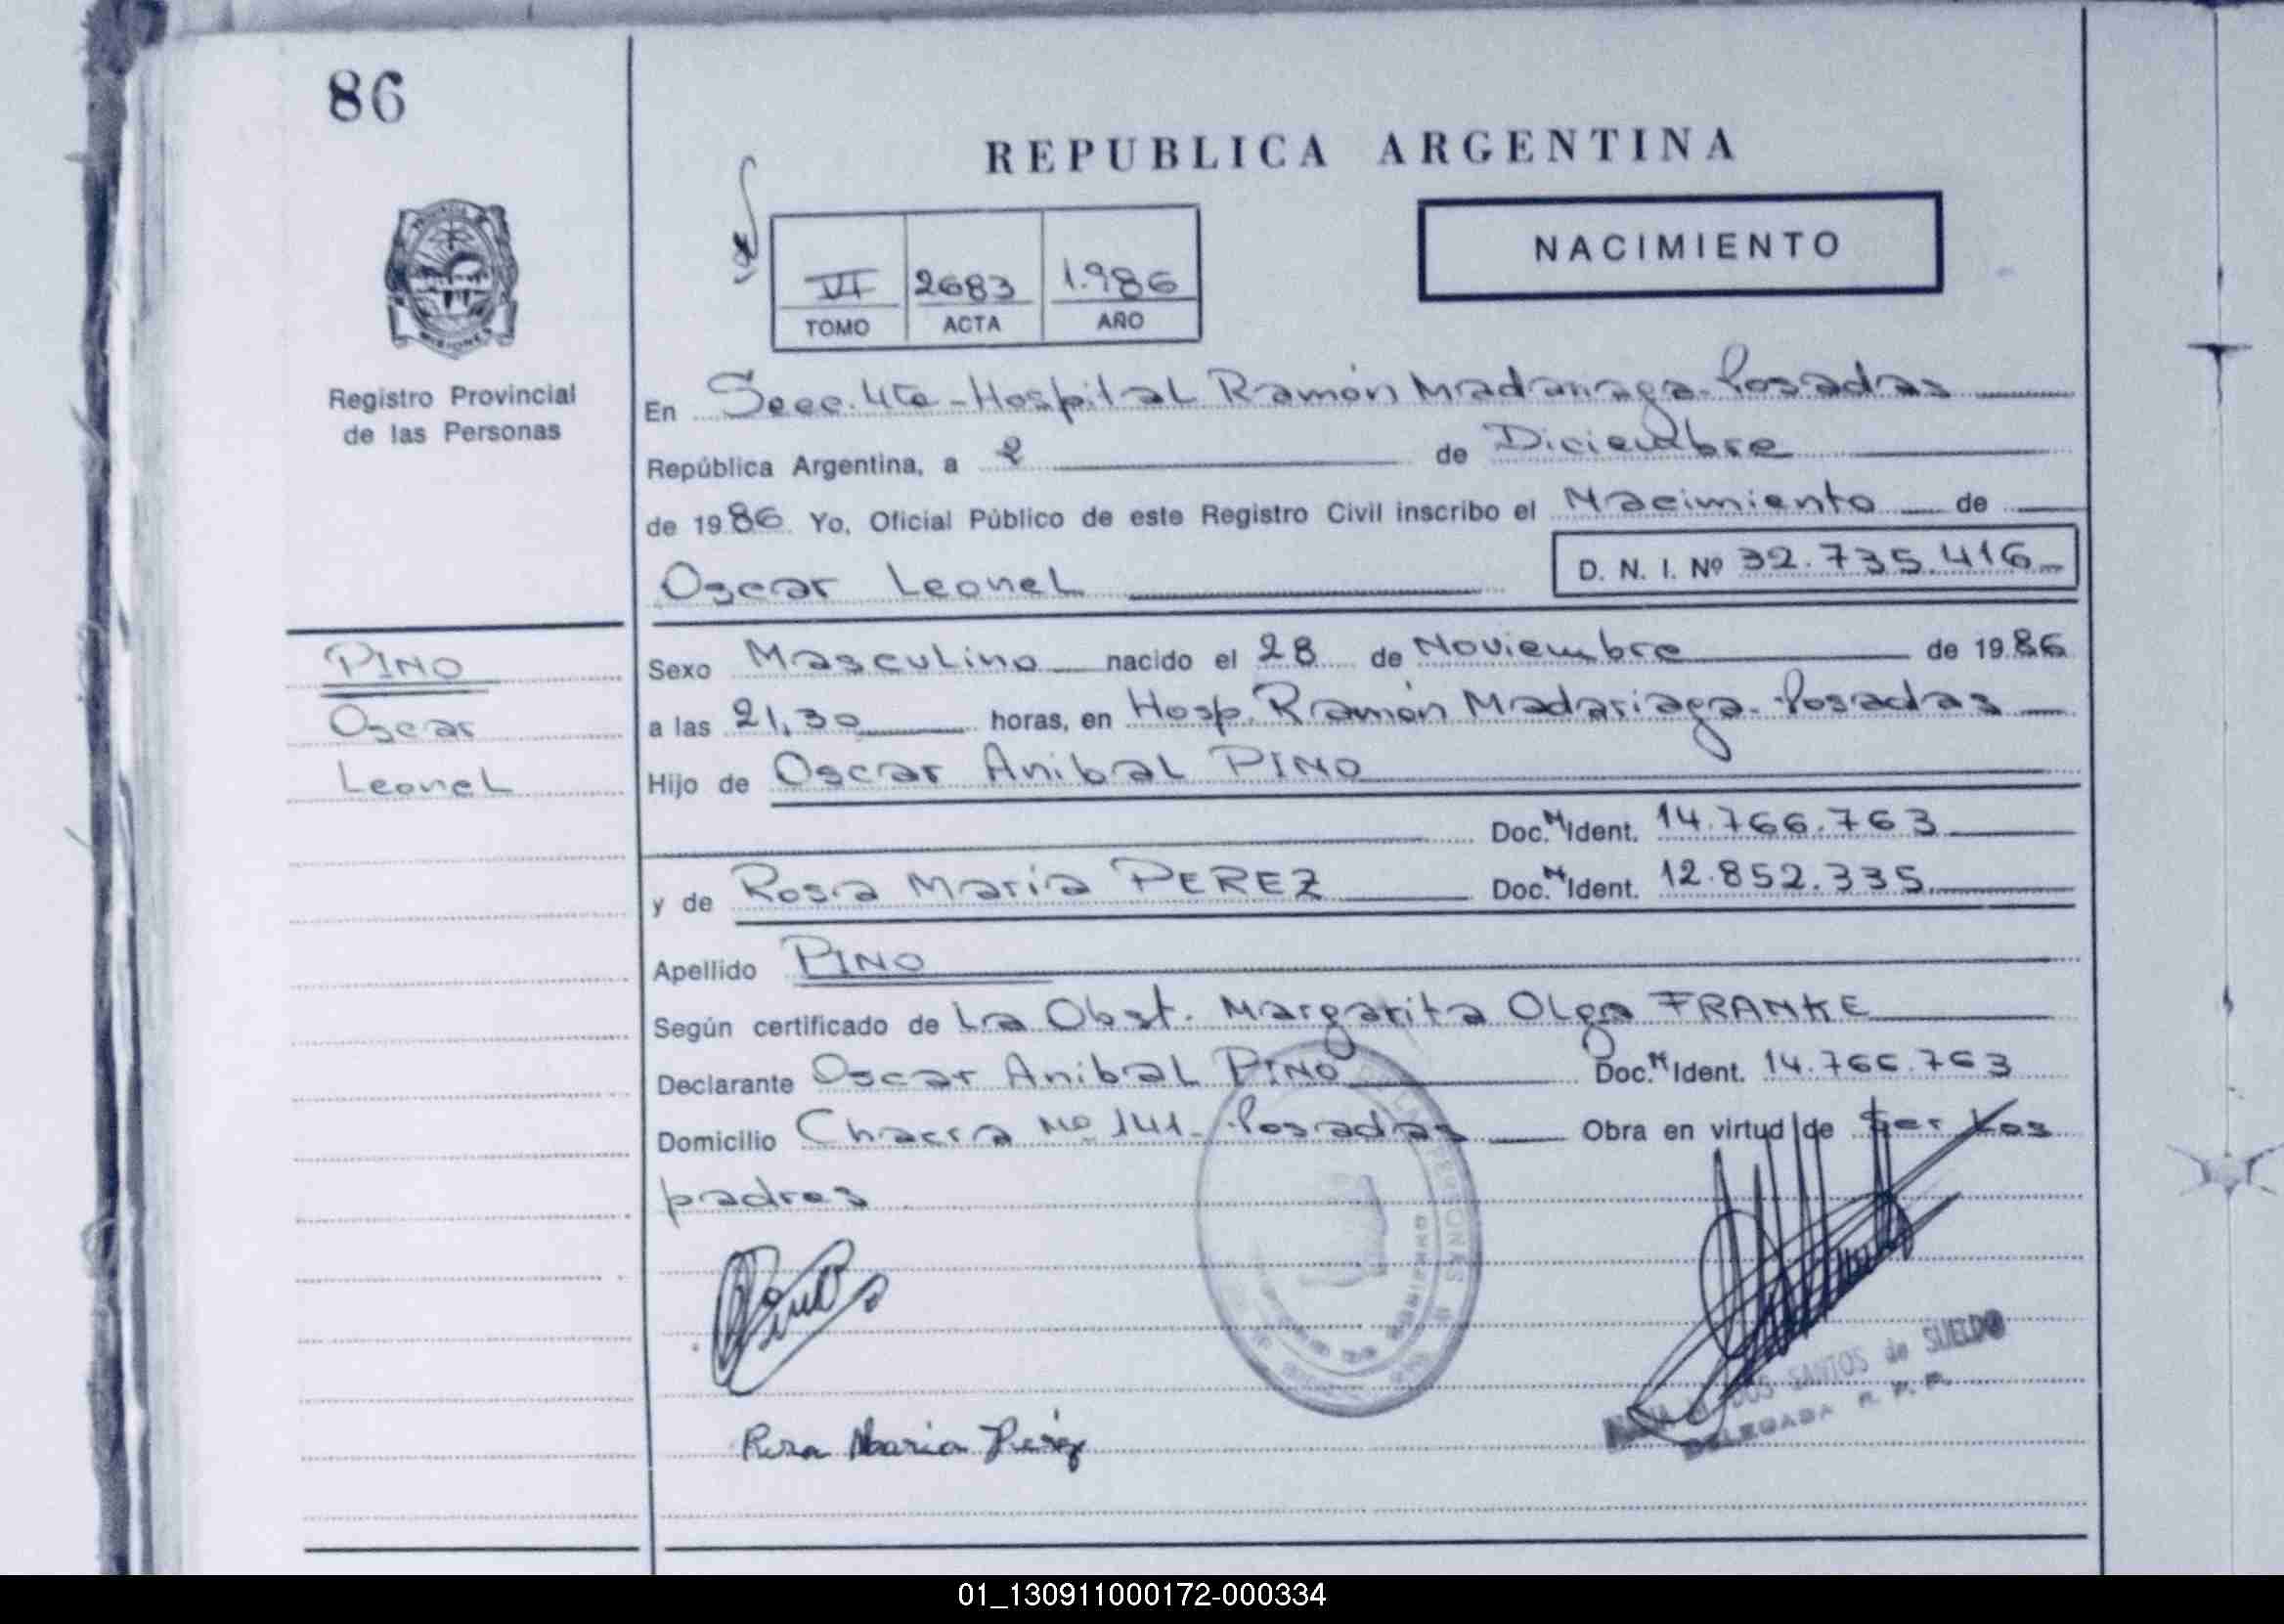 86
REPUBLICA ARGENTINA
NACIMIENTO
VI 2683 1.986
TOMO ACTA AÑO
Registro Provincial
de las Personas
En Secc. 4ta - Hospital Ramón Madariaga - Posadas
República Argentina, a 2 de Diciembre
de 1986 Yo, Oficial Público de este Registro Civil inscribo el Nacimiento de
Oscar Leonel D. N. I. Nº 32.735.416
PINO
Oscar
Leonel
Sexo Masculino nacido el 28 de Noviembre de 1986
a las 21,30 horas, en Hosp. Ramón Madariaga - Posadas
Hijo de Oscar Anibal PINO
Doc. N Ident. 14.766.763
y de Rosa María PEREZ Doc. N Ident. 12.852.335
Apellido PINO
Según certificado de La Obst. Margarita Olga FRANKE
Declarante Oscar Anibal PINO Doc. N Ident. 14.766.763
Domicilio Chacra Nº 141 - Posadas Obra en virtud de Ser los
padres
Pino
Rosa Maria Pérez
DOS SANTOS de SUELDO
DELEGADA R. P. P.
01_130911000172-000334